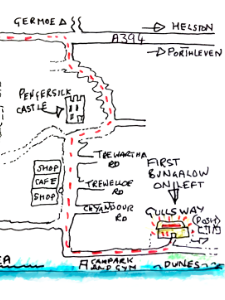 GERMOE
HELSTON
A394
PORTHLEVEN
PENGERSICK
CASTLE
TREWARTHA
RD
SHOP
CAFE
SHOP
TREWELLOE
RD
CHYANDOUR
RD
FIRST
BUNGALOW
ON LEFT
GULLS WAY
CARPARK
AND GYM
DUNES